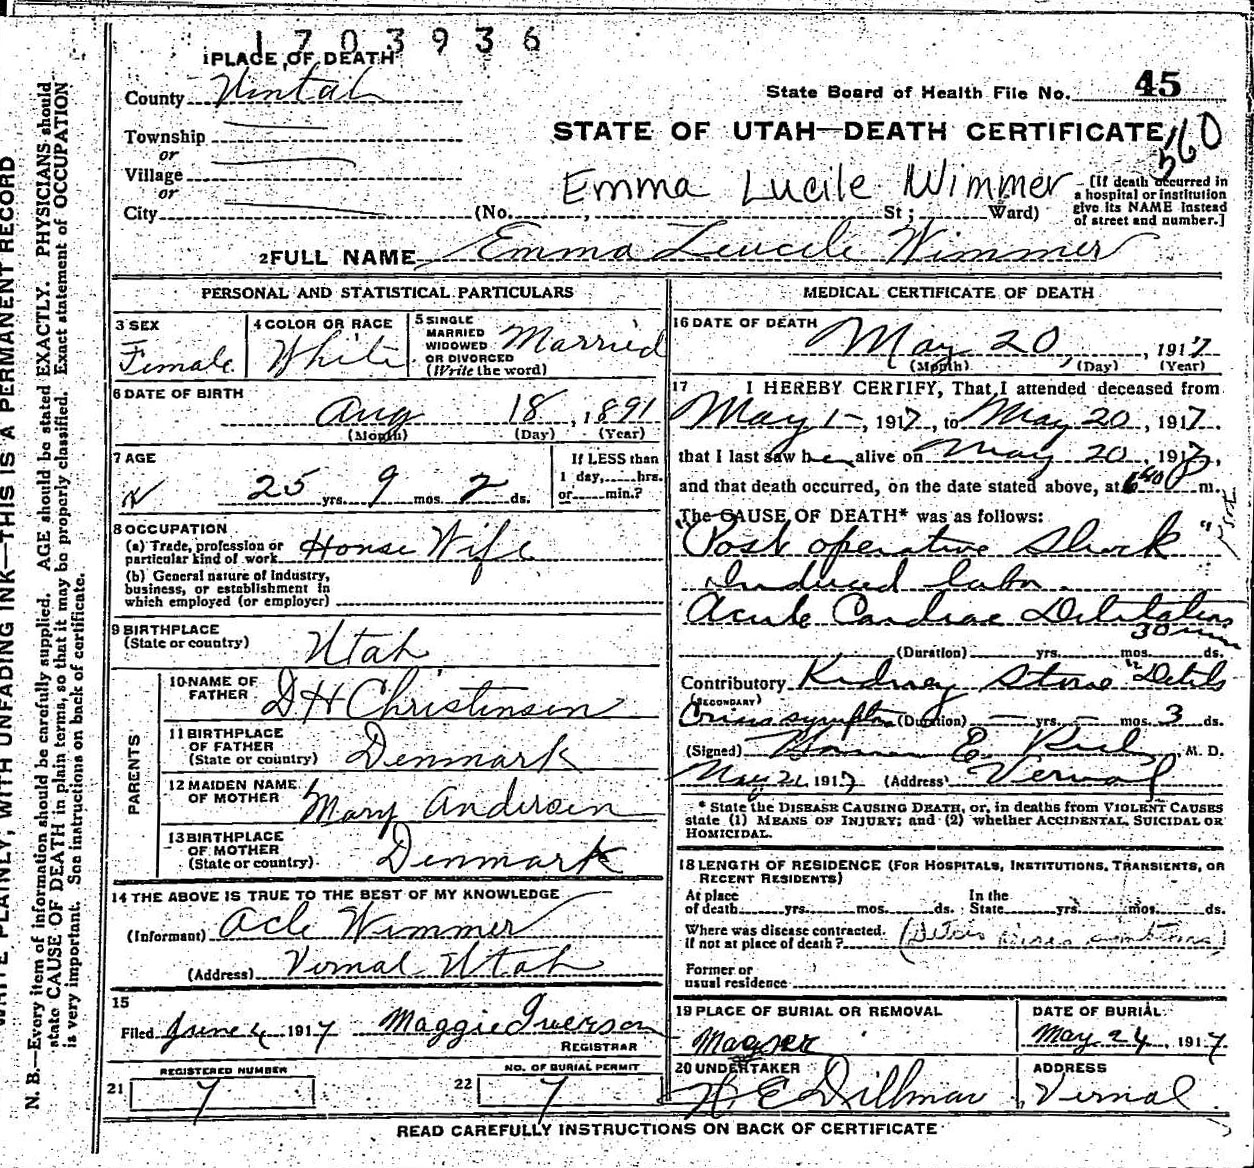 1703936
1 PLACE OF DEATH
County Uintah
State Board of Health File No. 45
Township
or
Village
or
City
STATE OF UTAH—DEATH CERTIFICATE
560
Emma Lucile Wimmer
(No. , St ; Ward)
[If death occurred in
a hospital or institution
give its NAME instead
of street and number.]
2 FULL NAME Emma Leucile Wimmer
PERSONAL AND STATISTICAL PARTICULARS
3 SEX
Female
4 COLOR OR RACE
White
5 SINGLE
MARRIED
WIDOWED
OR DIVORCED
(Write the word)
Married
6 DATE OF BIRTH
Aug 18, 1891
(Month) (Day) (Year)
7 AGE
25 yrs. 9 mos. 2 ds.
If LESS than
1 day, hrs.
or min.?
8 OCCUPATION
(a) Trade, profession or
particular kind of work House Wife
(b) General nature of industry,
business, or establishment in
which employed (or employer)
9 BIRTHPLACE
(State or country) Utah
PARENTS
10 NAME OF
FATHER D H Christensen
11 BIRTHPLACE
OF FATHER
(State or country) Denmark
12 MAIDEN NAME
OF MOTHER Mary Andersen
13 BIRTHPLACE
OF MOTHER
(State or country) Denmark
14 THE ABOVE IS TRUE TO THE BEST OF MY KNOWLEDGE
(Informant) Acle Wimmer
(Address) Vernal Utah
15
Filed June 4 1917 Maggie Iverson
REGISTRAR
21 REGISTERED NUMBER
7
22 NO. OF BURIAL PERMIT
7
MEDICAL CERTIFICATE OF DEATH
16 DATE OF DEATH
May 20, 1917
(Month) (Day) (Year)
17 I HEREBY CERTIFY, That I attended deceased from
May 1-, 1917, to May 20, 1917.
that I last saw her alive on May 20, 1917,
and that death occurred, on the date stated above, at 6 40 P m.
The CAUSE OF DEATH* was as follows:
"Post operative Shock"
Induced labor.
Acute Cardiac Dilitation
30 min
(Duration) yrs. mos. ds.
Contributory Kidney Stone
(SECONDARY)
(Duration) — yrs. — mos. 3 ds.
(Signed) E. M. D.
May 21 1917 (Address) Vernal
* State the DISEASE CAUSING DEATH, or, in deaths from VIOLENT CAUSES
state (1) MEANS OF INJURY; and (2) whether ACCIDENTAL, SUICIDAL OR
HOMICIDAL.
18 LENGTH OF RESIDENCE (FOR HOSPITALS, INSTITUTIONS, TRANSIENTS, OR
RECENT RESIDENTS)
At place
of death yrs. mos. ds.
In the
State yrs. mos. ds.
Where was disease contracted.
if not at place of death?
Former or
usual residence
19 PLACE OF BURIAL OR REMOVAL
DATE OF BURIAL
May 24, 1917
20 UNDERTAKER
W E Dillman
ADDRESS
Vernal
READ CAREFULLY INSTRUCTIONS ON BACK OF CERTIFICATE
WRITE PLAINLY, WITH UNFADING INK—THIS IS A PERMANENT RECORD
N. B.—Every item of information should be carefully supplied. AGE should be stated EXACTLY. PHYSICIANS should
state CAUSE OF DEATH in plain terms, so that it may be properly classified. Exact statement of OCCUPATION
is very important. See instructions on back of certificate.